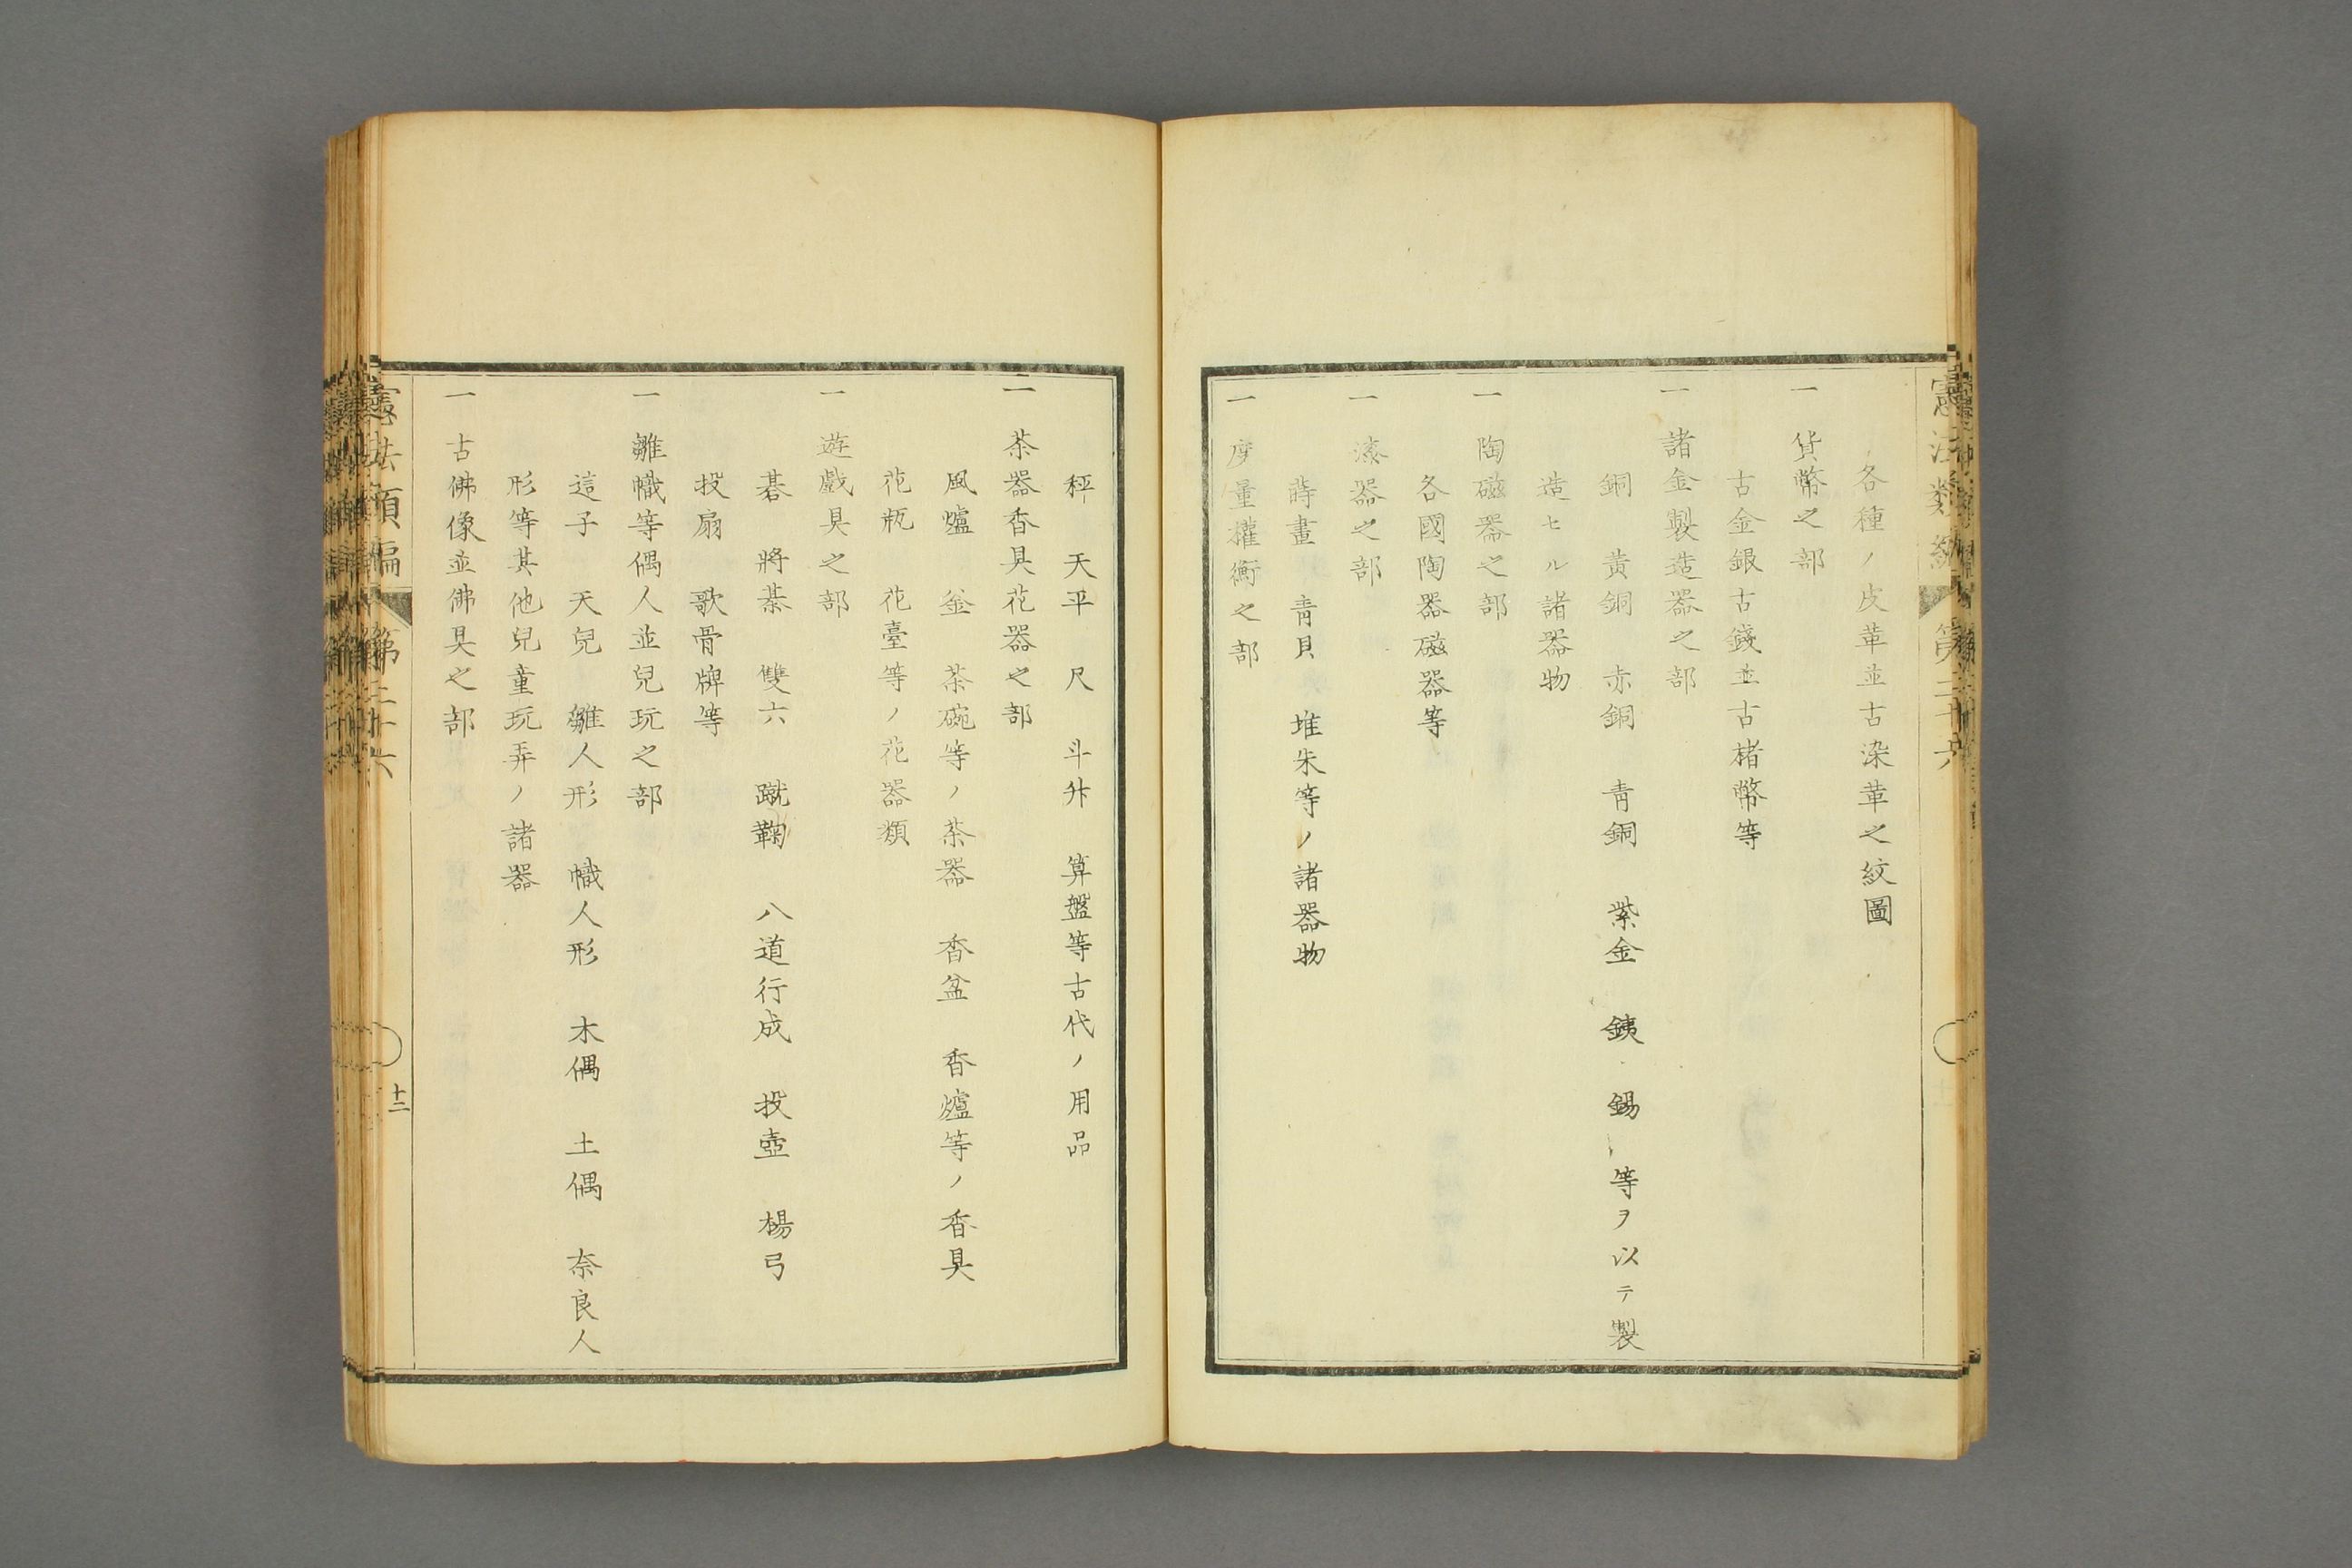 各種ノ皮革並古染革之紋圖
一 貨幣之部
古金銀古錢並古楮幣等
一 諸金製造器之部
銅 黃銅 赤銅 靑銅 紫金 銕 錫 等ヲ以テ製
造セル諸器物
一 陶磁器之部
各國陶器磁器等
一 漆器之部
蒔畫 靑貝 堆朱等ノ諸器物
一 度量權衡之部
秤 天平 尺 斗升 算盤等古代ノ用品
一 茶器香具花器之部
風爐 釡 茶碗等ノ茶器 香盆 香爐等ノ香具
花瓶 花臺等ノ花器類
一 遊戲具之部
碁 將棊 雙六 蹴鞠 八道行成 投壺 楊弓
投扇 歌骨牌等
一 雛幟等偶人並兒玩之部
這子 天兒 雛人形 幟人形 木偶 土偶 奈良人
形等其他兒童玩弄ノ諸器
一 古佛像並佛具之部
憲法類編 第二十六
十二